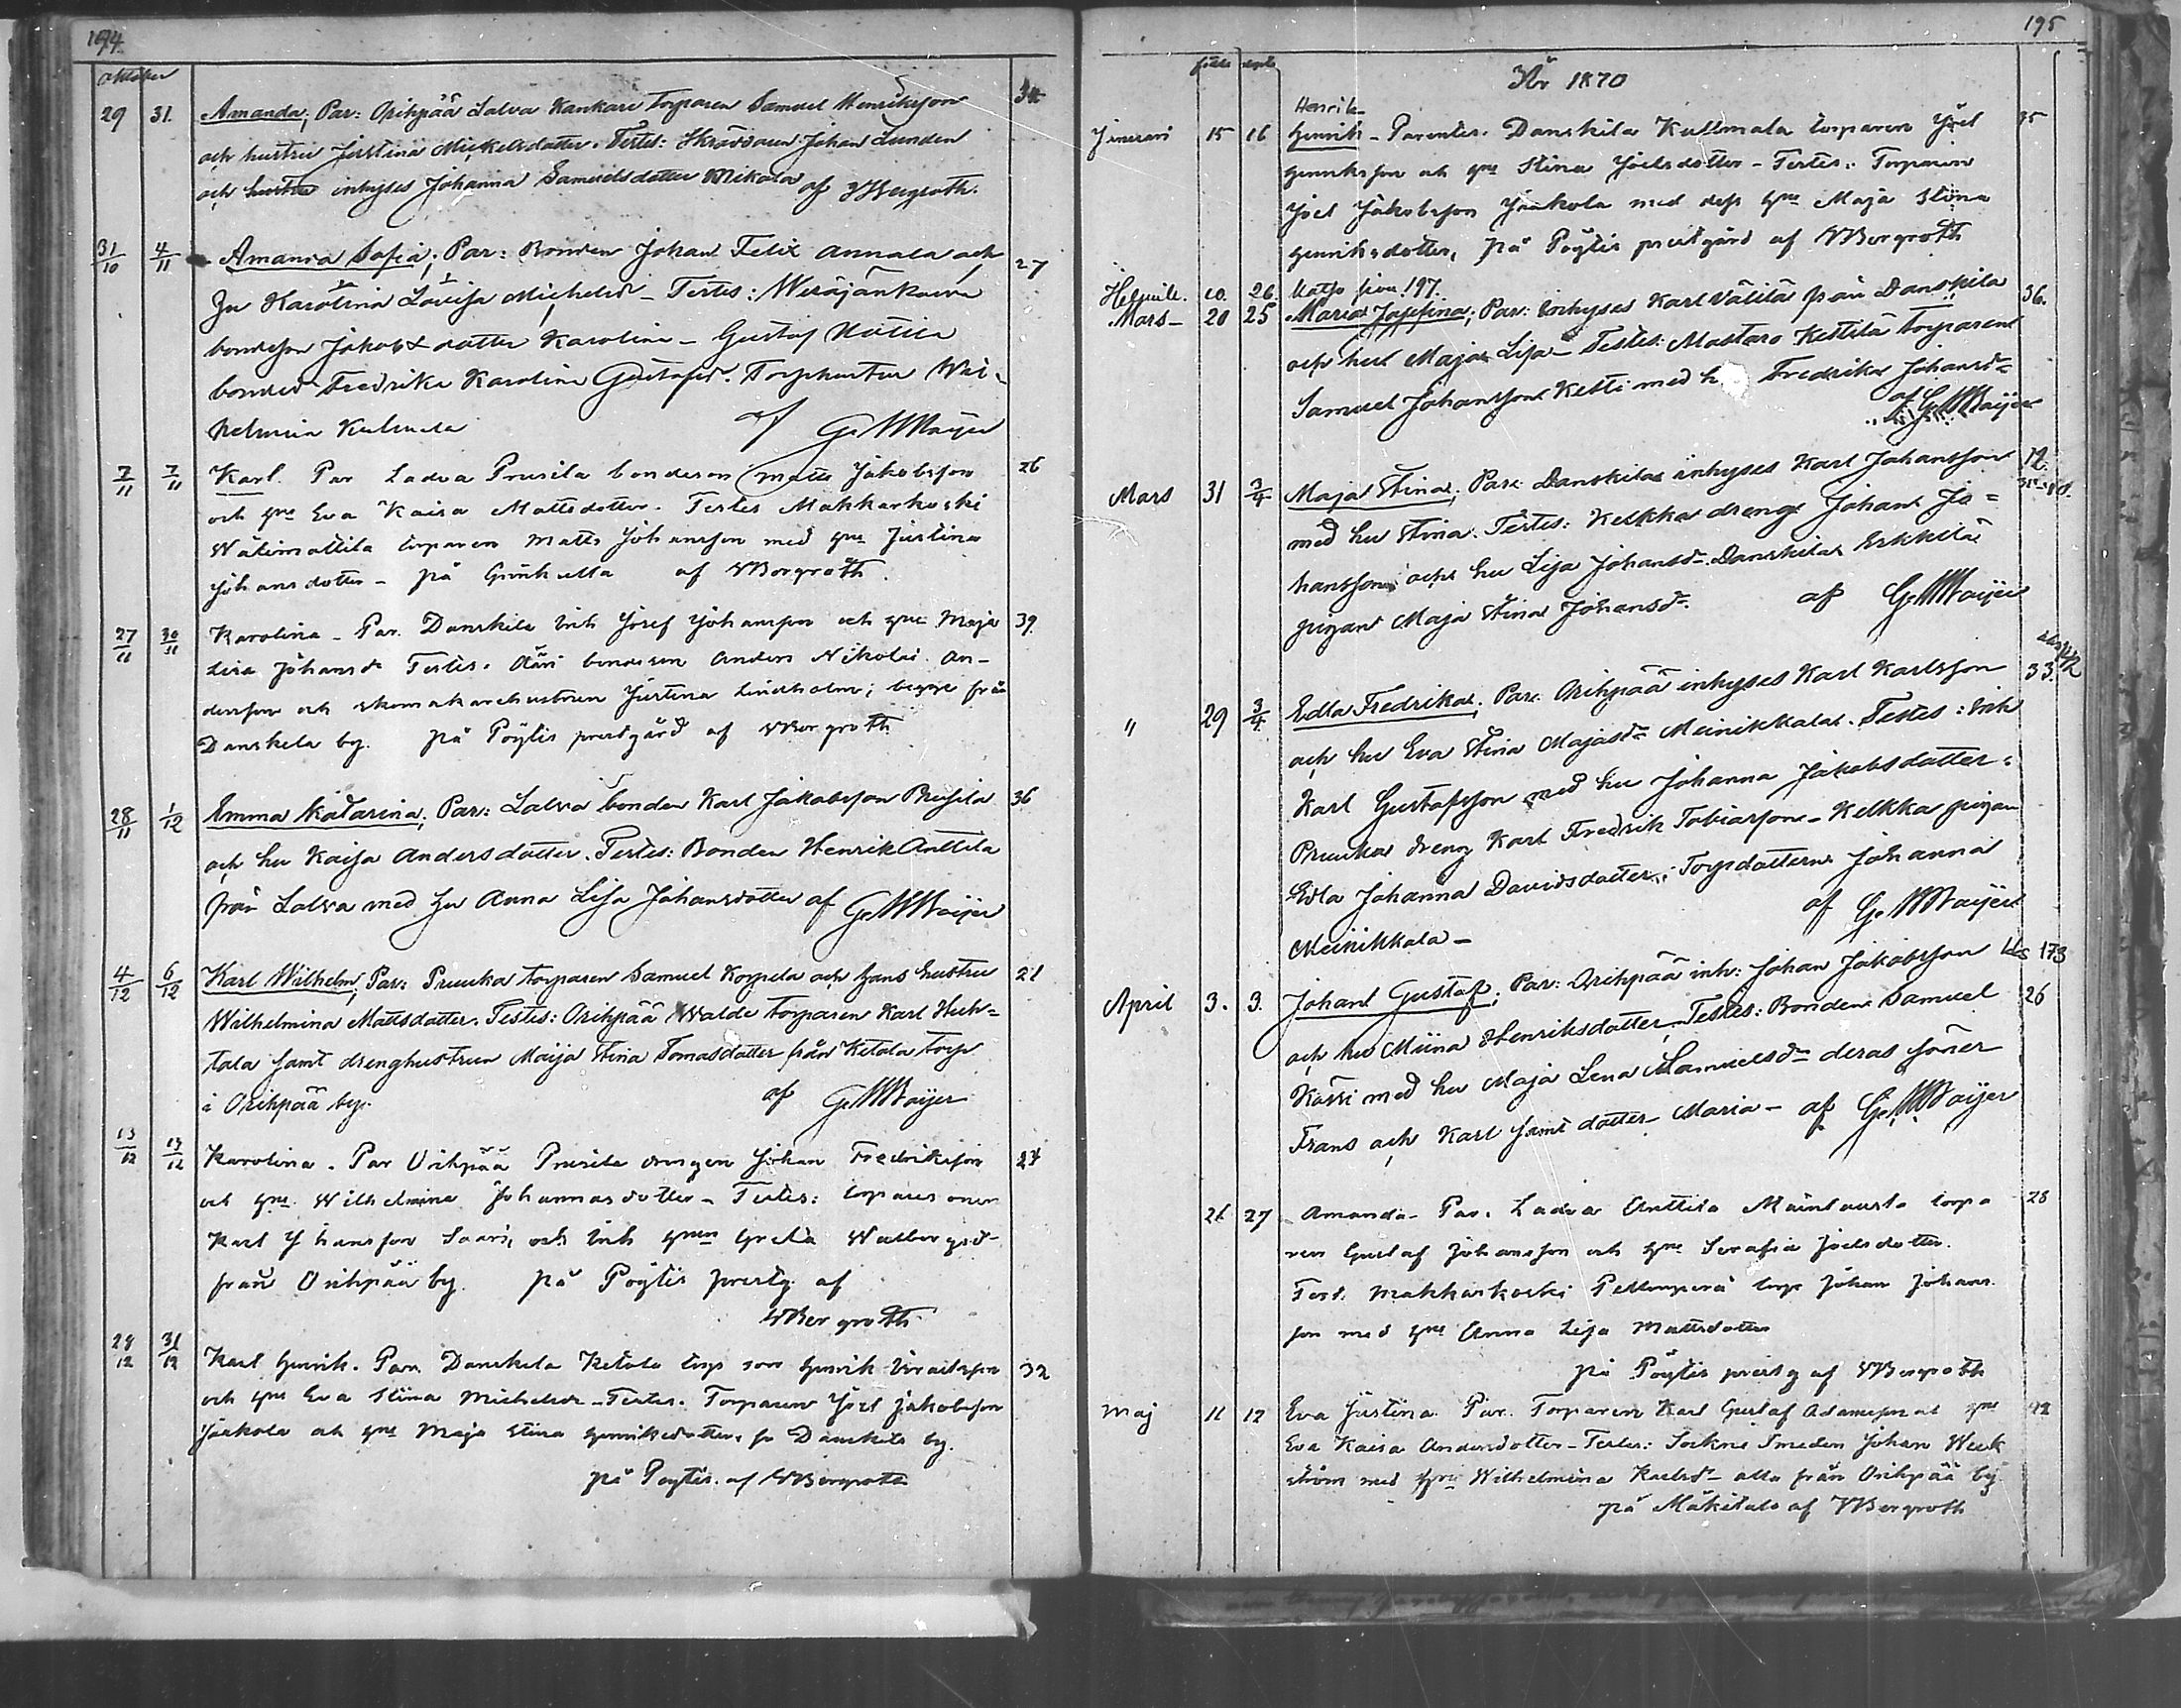 194.
oktober
29 31. Amanda; Par: Orihpää Lalva Kankare Torparen Samuel Henriksson 34
och hustru Justina Mickelsdotter. Testes: Skräddaren Johan Lunden
och hustru inhyses Johanna Samuelsdotter Mikola af WBergroth.
31/10 4/11 Amanda Sofia; Par: Bonden Johan Felix Annala och 27
Hu Karolina Lovisa Michelsd - Testes:
bondeson Jakob & dotter Karolina - Gustaf
bonded Fredrika Karolina Gustafsd. Torphustru Wil-
helmina Kulmala af G. W Waijer
7/11 7/11 Karl. Par Ladva Prusila bondeson Matts Jakobsson 26
och hru Eva Kaisa Mattsdotter. Testes Makkarkoski
Wälimattila torparen Matts Johansson med hru Justina
Johansdotter - på af WBergroth.
27/11 30/11 Karolina - Par. Danskila Inh Josef Johansson och hru Maja 39.
Lisa Johansd Testes. bondeson Anders Nikolai An-
dersson och skomakarehustrun Justina Lindholm; begge från
Danskela by. på Pöytis prestgård af WBergroth
28/11 1/12 Emma Katarina; Par: Lalva bonden Karl Jakobsson Prusila 36
och hu Kaisa Andersdotter. Testes: Bonden Henrik Anttila
från Lalva med Hu Anna Lisa Johansdotter af G. W Waijer
4/12 6/12 Karl Wilhelm; Par: Pruuka torparen Samuel Korpela och hans hustru 21
Wilhelmina Mattsdotter. Testes: Orihpää Walde torparen Karl Huh-
tala samt drenghustrun Maija Stina Tomasdotter från Ketola torp
i Orihpää by. af G. W Waijer
13/12 13/12 Karolina. Par Orihpää Prusila drengen Johan Fredriksson 24
och hru. Wilhelmina Johannasdotter - Testes: torparesonen
Karl Johansson Saari, och Inh hrun Greta Walborgsd
från Orihpää by. på Pöytis prestg. af
WBergroth
28/12 31/12 Karl Henrik. Par. Danskela Ketola torp son Henrik 32
och hru Eva Stina Michelsdr - Testes. Torparen Joel Jakobsson
Jaakola och hru Maja Stina Henriksdotter, fr Danskila by.
på Pöytis. af WBergroth
195
född döpt
År 1870
Henrik
Januari 15 16 Henrik - Parentes. Danskila Kullmala torparen Joel 35
Henriksson och hru Stina Joelsdotter - Testes: Torparen
Joel Jakobsson Jaakola med dess hru Maja Stina
Henriksdotter, på Pöytis prestgård af WBergroth
Helmik. 10. 26. Katso sivu 197.
Mars - 20 25 Maria Josefina; Par: Inhyses Karl Välilä från Danskila 36.
och hu Maja Lisa - Testes: Mastaro Kettilä torparen
Samuel Johansson Ketti med h Fredrika Johansd=
af G. W Waijer
Mars 31 3/4 Maja Stina; Par: Danskila inhyses Karl Johansson 12.
med hu Stina. Testes: Kelkka dreng Johan Jo=
hansson och hu Lisa Johansd - Danskila Erkkilä
pigan Maja Stina Johansd. af G. W Waijer
" 29 3/4 Edla Fredrika; Par: Orihpää inhyses Karl Karlsson 33.
och hu Eva Stina Majasd= Meinikkala. Testes: Inh
Karl Gustafsson med hu Johanna Jakobsdotter.
Pruuka dreng Karl Fredrik Tobiasson - Kelkka pigan
Edla Johanna Davidsdotter; Torpdottern Johanna
Meinikkala - af G. W Waijer
April 3. 3. Johan Gustaf; Par: Orihpää inh: Johan Jakobsson 173
och hu Miina Henriksdotter, Testes: Bonden Samuel 26
Kässi med hu Maja Lena Samuelsd= deras söner
Frans och Karl samt dotter Maria - af G. W Waijer
21 27 Amanda - Par. Ladva Anttila Mäintausta torpa 28
ren Gustaf Johansson och hru Serafia Joelsdotter.
Test. Makkarkoski Pellonperä torp Johan Johans
son med hru Anna Lisa Mattsdotter
på Pöytis prestg af WBergroth
Maj 11 12 Eva Justina Par. Torparen Karl Gustaf Adamsson och hru 42
Eva Kaisa Andersdotter - Testes: Sockne Smeden Johan Week
ström med hru Wilhelmina Karlsd - alla från Orihpää by
på Mäkitalo af WBergroth